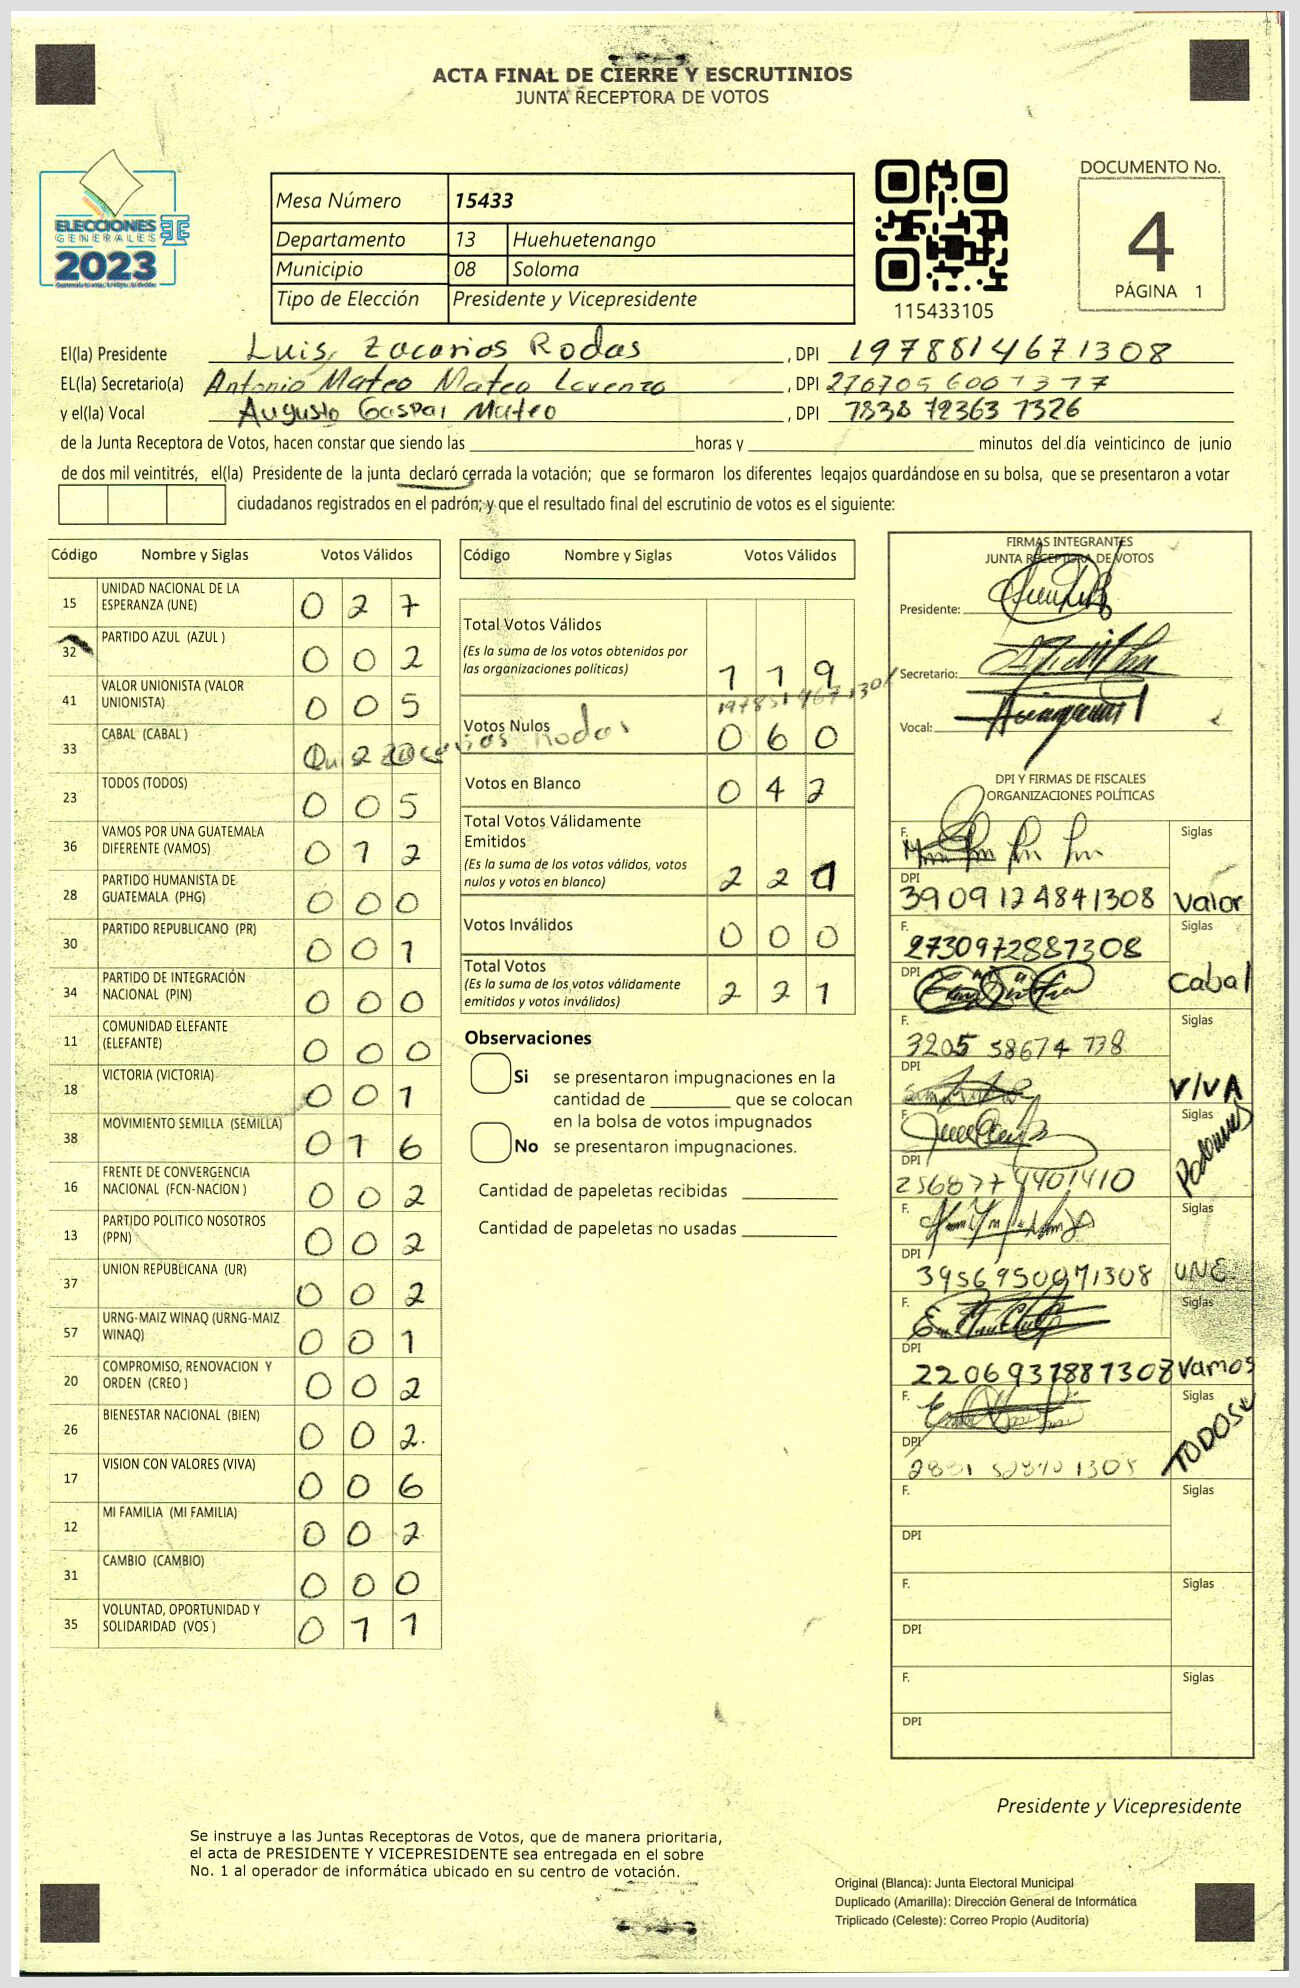 ACTA FINAL DE CIERRE Y ESCRUTINIOS
JUNTA RECEPTORA DE VOTOS
ELECCIONES
GENERALES
2023
Mesa Número 15433
Departamento 13 Huehuetenango
Municipio 08 Soloma
Tipo de Elección Presidente y Vicepresidente
115433105
DOCUMENTO No.
4
PÁGINA 1
El(la) Presidente Luis Zacarias Rodas , DPI 1978814671308
EL(la) Secretario(a) Antonio Mateo Mateo Lorenzo , DPI
y el(la) Vocal Augusto Gaspar Mateo , DPI 7838 72363 1326
de la Junta Receptora de Votos, hacen constar que siendo las ____ horas y ____ minutos del día veinticinco de junio
de dos mil veintitrés, el(la) Presidente de la junta declaró cerrada la votación; que se formaron los diferentes legajos quardándose en su bolsa, que se presentaron a votar
ciudadanos registrados en el padrón; y que el resultado final del escrutinio de votos es el siguiente:
Código Nombre y Siglas Votos Válidos
15 UNIDAD NACIONAL DE LA
ESPERANZA (UNE) 0 2 7
32 PARTIDO AZUL (AZUL ) 0 0 2
41 VALOR UNIONISTA (VALOR
UNIONISTA) 0 0 5
33 CABAL (CABAL ) 0 2 0
23 TODOS (TODOS) 0 0 5
36 VAMOS POR UNA GUATEMALA
DIFERENTE (VAMOS) 0 1 2
28 PARTIDO HUMANISTA DE
GUATEMALA (PHG) 0 0 0
30 PARTIDO REPUBLICANO (PR) 0 0 1
34 PARTIDO DE INTEGRACIÓN
NACIONAL (PIN) 0 0 0
11 COMUNIDAD ELEFANTE
(ELEFANTE) 0 0 0
18 VICTORIA (VICTORIA) 0 0 1
38 MOVIMIENTO SEMILLA (SEMILLA) 0 1 6
16 FRENTE DE CONVERGENCIA
NACIONAL (FCN-NACION ) 0 0 2
13 PARTIDO POLITICO NOSOTROS
(PPN) 0 0 2
37 UNION REPUBLICANA (UR) 0 0 2
57 URNG-MAIZ WINAQ (URNG-MAIZ
WINAQ) 0 0 1
20 COMPROMISO, RENOVACION Y
ORDEN (CREO ) 0 0 2
26 BIENESTAR NACIONAL (BIEN) 0 0 2
17 VISION CON VALORES (VIVA) 0 0 6
12 MI FAMILIA (MI FAMILIA) 0 0 2
31 CAMBIO (CAMBIO) 0 0 0
35 VOLUNTAD, OPORTUNIDAD Y
SOLIDARIDAD (VOS ) 0 1 1
Código Nombre y Siglas Votos Válidos
Total Votos Válidos
(Es la suma de los votos obtenidos por
las organizaciones políticas) 1 1 9
Votos Nulos 0 6 0
Votos en Blanco 0 4 2
Total Votos Válidamente
Emitidos
(Es la suma de los votos válidos, votos
nulos y votos en blanco) 2 2 1
Votos Inválidos 0 0 0
Total Votos
(Es la suma de los votos válidamente
emitidos y votos inválidos) 2 2 1
Observaciones
Si se presentaron impugnaciones en la
cantidad de ____ que se colocan
en la bolsa de votos impugnados
No se presentaron impugnaciones.
Cantidad de papeletas recibidas ____
Cantidad de papeletas no usadas ____
FIRMAS INTEGRANTES
JUNTA RECEPTORA DE VOTOS
Presidente:
Secretario:
Vocal:
DPI Y FIRMAS DE FISCALES
ORGANIZACIONES POLÍTICAS
F. Siglas
DPI 3909124841308 Valor
F. 2730972887308 Siglas
DPI Cabal
F. 3205 58674 738 Siglas
DPI VIVA
F. Siglas
DPI
F. Siglas
DPI 3956950071308 UNE
F. Siglas
DPI 2206937887308 Vamos
F. Siglas
DPI TODOS
F. Siglas
DPI
F. Siglas
DPI
F. Siglas
DPI
Presidente y Vicepresidente
Se instruye a las Juntas Receptoras de Votos, que de manera prioritaria,
el acta de PRESIDENTE Y VICEPRESIDENTE sea entregada en el sobre
No. 1 al operador de informática ubicado en su centro de votación.
Original (Blanca): Junta Electoral Municipal
Duplicado (Amarilla): Dirección General de Informática
Triplicado (Celeste): Correo Propio (Auditoría)